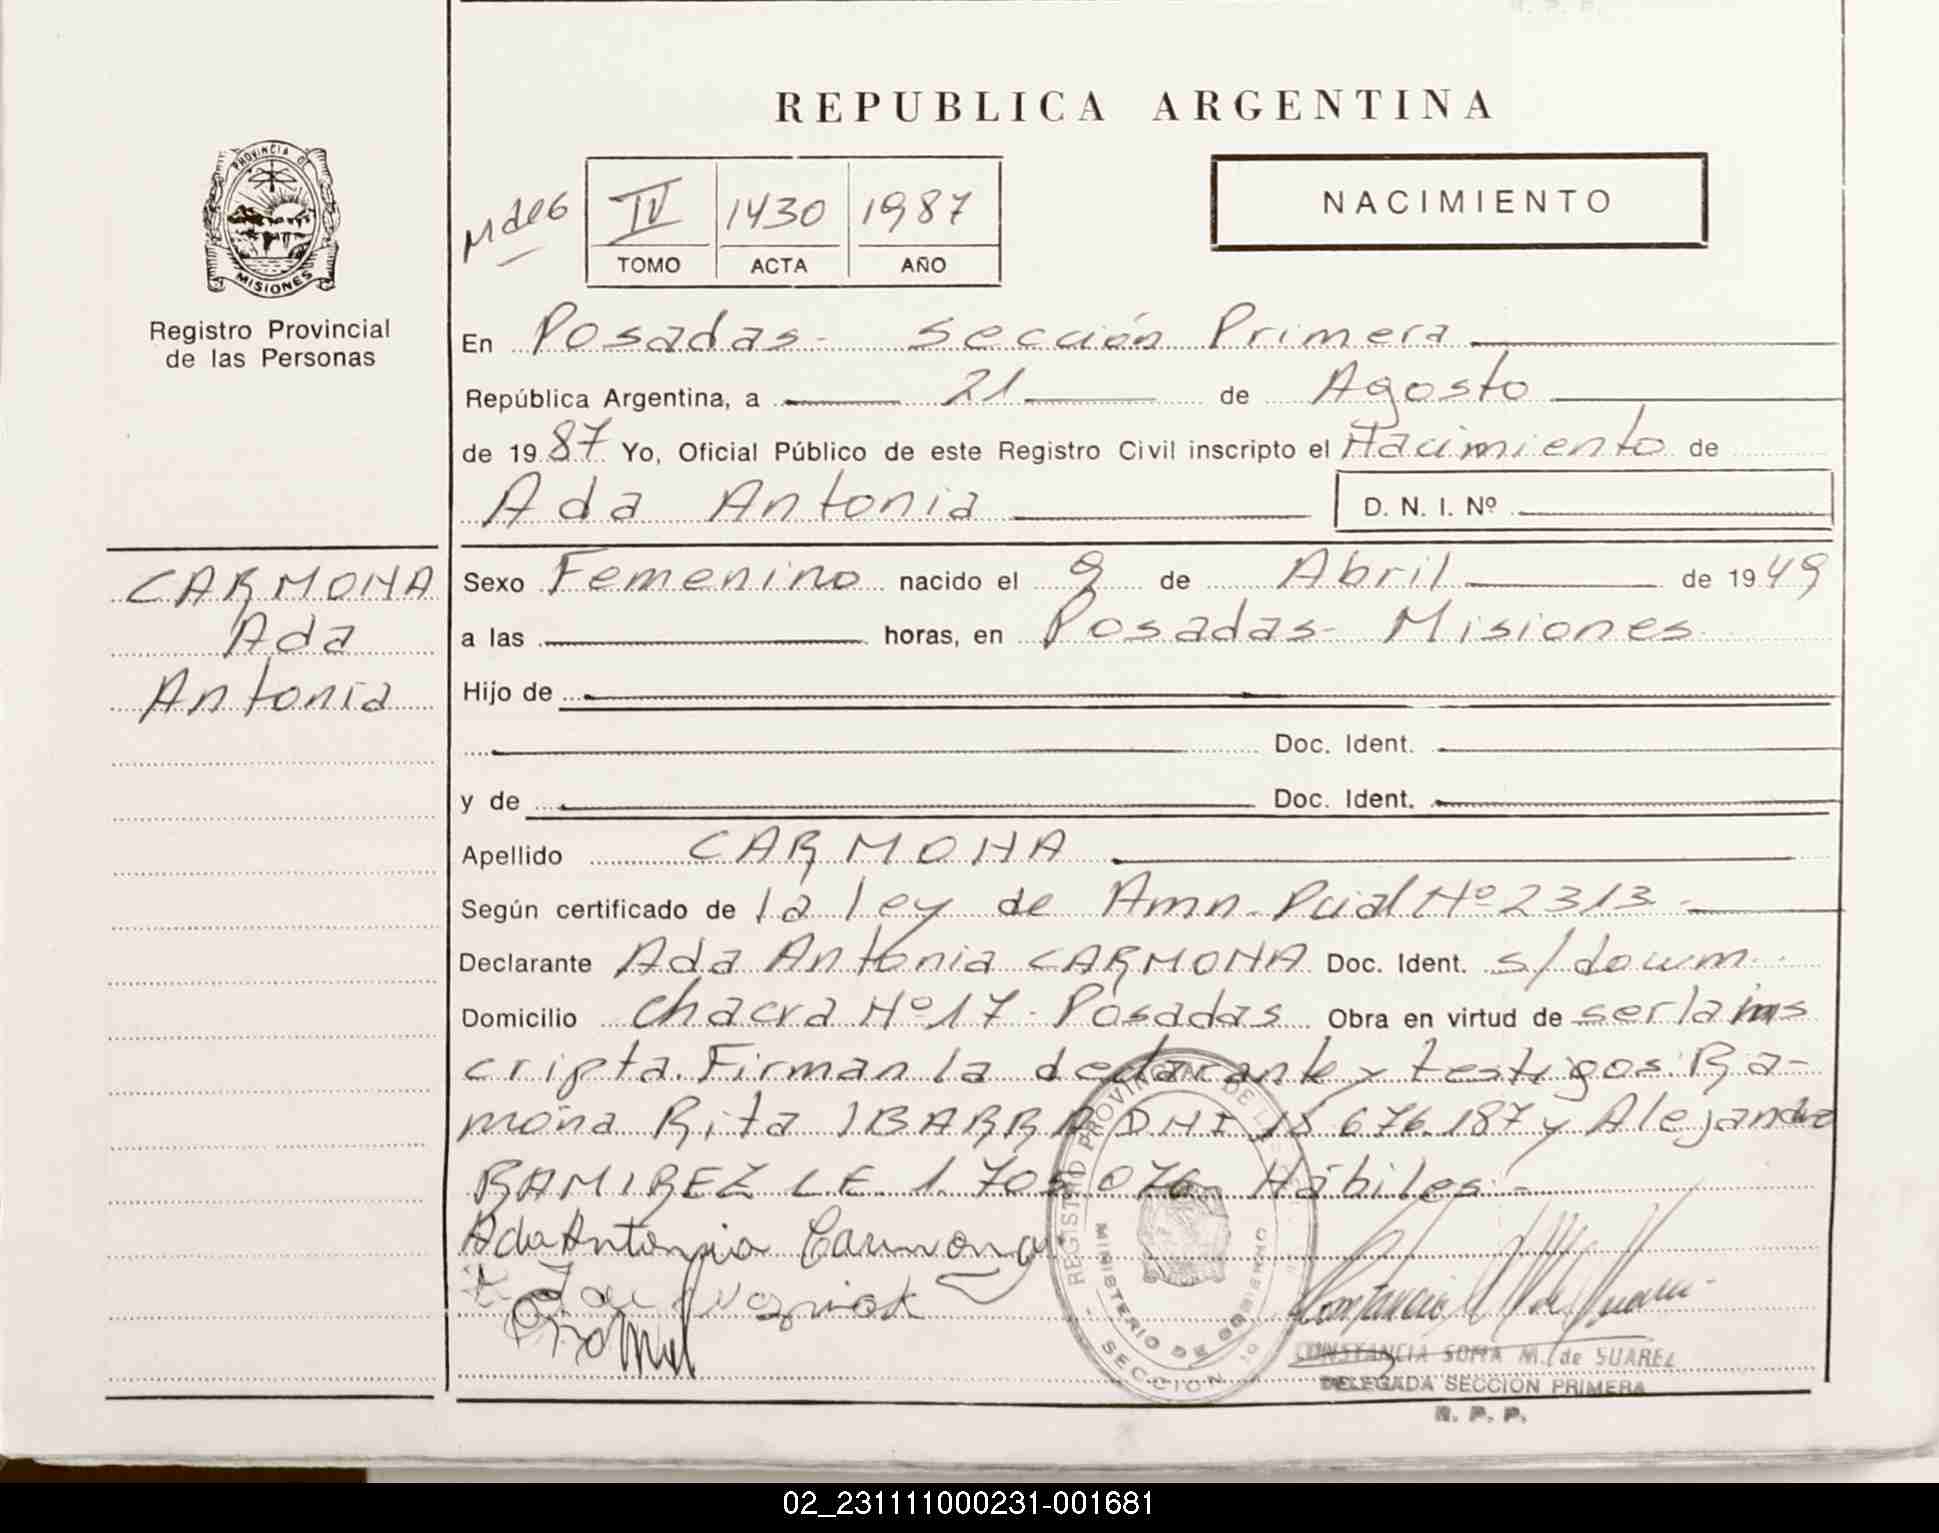 REPUBLICA ARGENTINA
PROVINCIA DE
MISIONES
Registro Provincial
de las Personas
IV 1430 1987
TOMO ACTA AÑO
NACIMIENTO
En Posadas - Sección Primera
República Argentina, a 21 de Agosto
de 1987 Yo, Oficial Público de este Registro Civil inscripto el Nacimiento de
Ada Antonia D. N. I. Nº
CARMONA
Ada
Antonia
Sexo Femenino nacido el 9 de Abril de 1949
a las horas, en Posadas - Misiones
Hijo de
Doc. Ident.
y de Doc. Ident.
Apellido CARMONA
Según certificado de la ley de Amn. Pcial Nº 2313 -
Declarante Ada Antonia CARMONA Doc. Ident. s/docum.
Domicilio Chacra Nº 17 - Posadas Obra en virtud de ser la ins
cripta. Firman la declarante y testigos: Ra-
mona Rita IBARRA DNI 18 676.187 y Alejandro
RAMIREZ L.E. 1.705.076 Hábiles. -
Ada Antonia Carmona
REGISTRO PROVINCIAL DE LAS
MINISTERIO DE GOBIERNO
SECCION
CONSTANCIA SOMA M. de SUAREZ
DELEGADA SECCION PRIMERA
R. P. P.
02_231111000231-001681